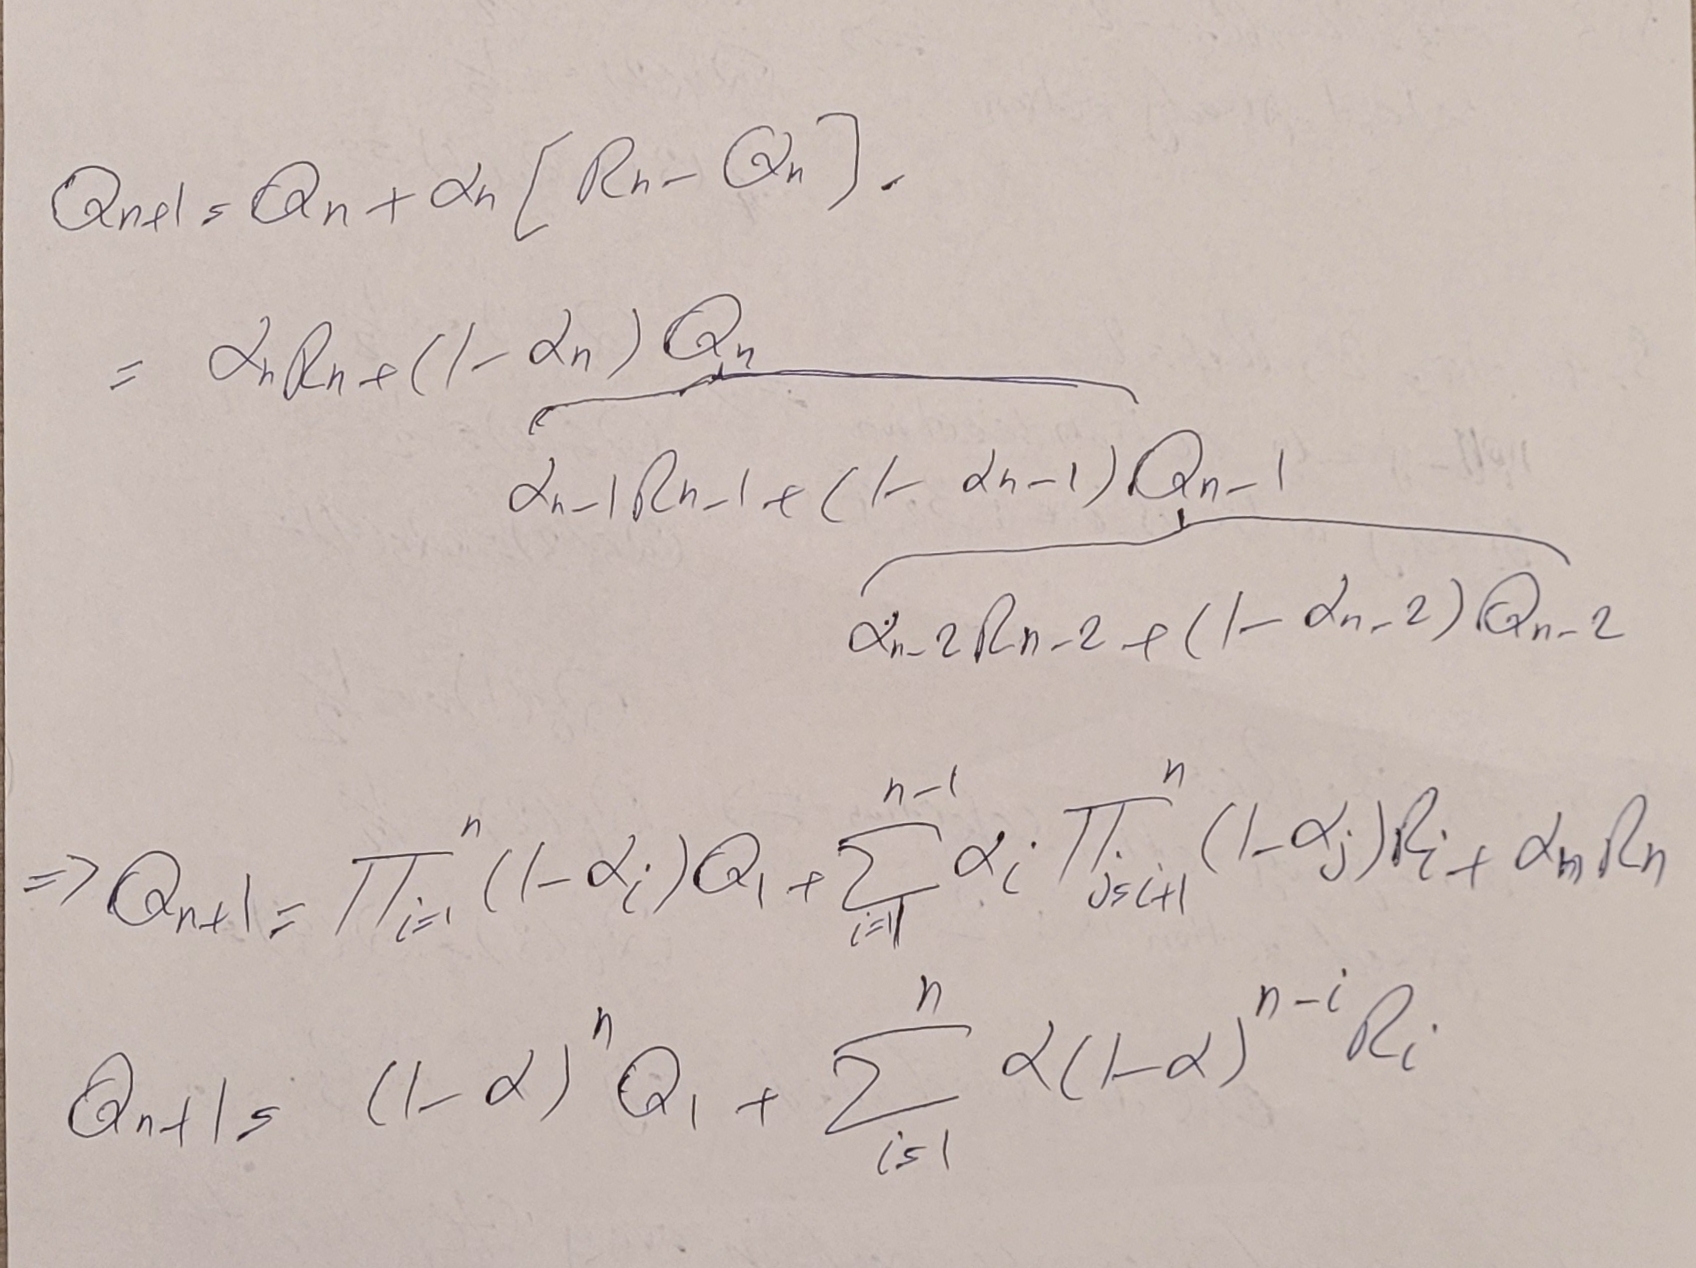 Qn+1 = Qn + αn [Rn - Qn].
= αnRn + (1 - αn) Qn
αn-1Rn-1 + (1 - αn-1) Qn-1
αn-2Rn-2 + (1 - αn-2) Qn-2
⇒ Qn+1 = Π i=1 n (1 - αi) Q1 + Σ i=1 n-1 αi Π j=i+1 n (1 - αj) Ri + αn Rn
Qn+1 = (1 - α)^n Q1 + Σ i=1 n α(1 - α)^n-i Ri